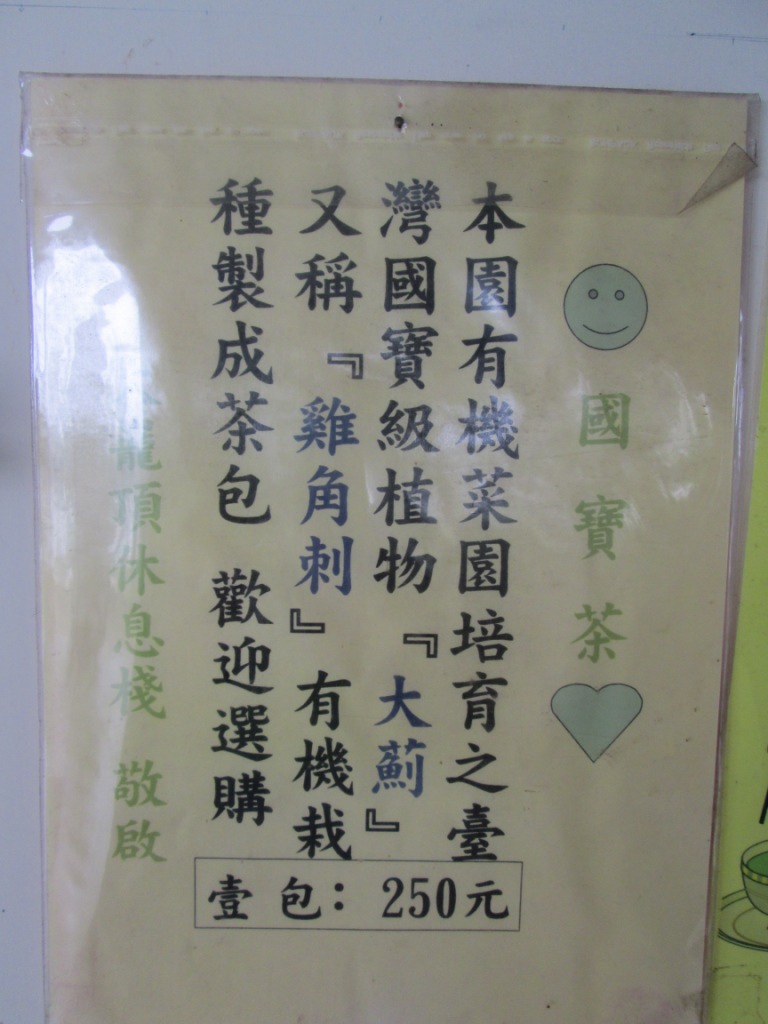 國寶茶
本園有機菜園培育之臺
灣國寶級植物『大薊』
又稱『雞角刺』有機栽
種製成茶包 歡迎選購
龍頂休息棧 敬啟
壹包：250元